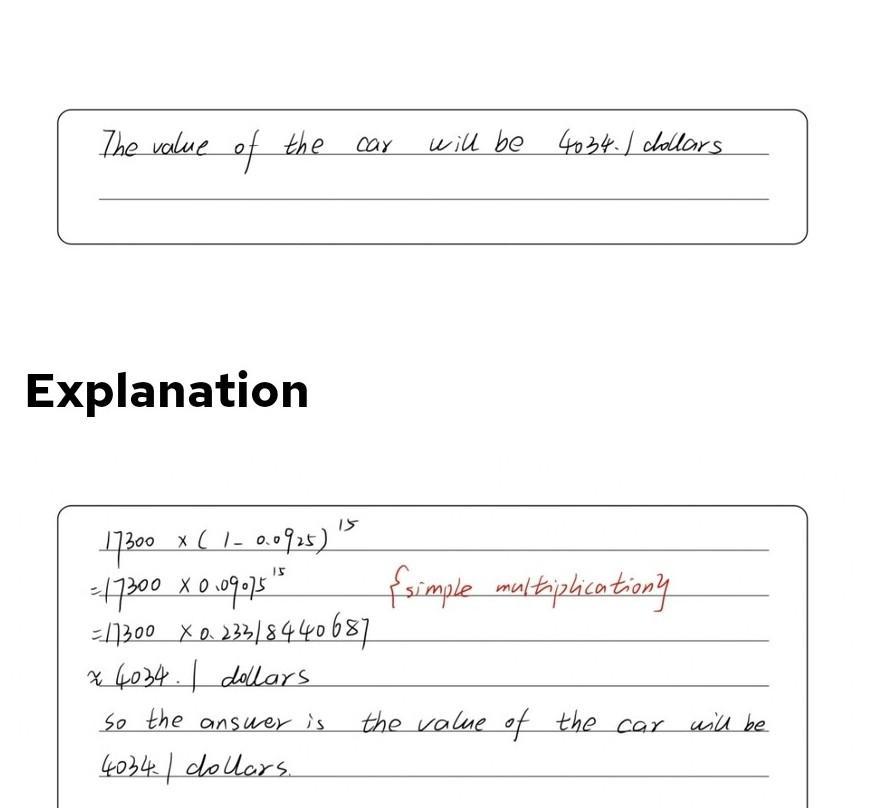 The value of the car will be 4034.1 dollars
Explanation
17300 × ( 1 - 0.0925)^15
=17300 × 0.09075^15 {simple multiplication}
=17300 × 0.23318440687
≈ 4034.1 dollars
so the answer is the value of the car will be
4034.1 dollars.